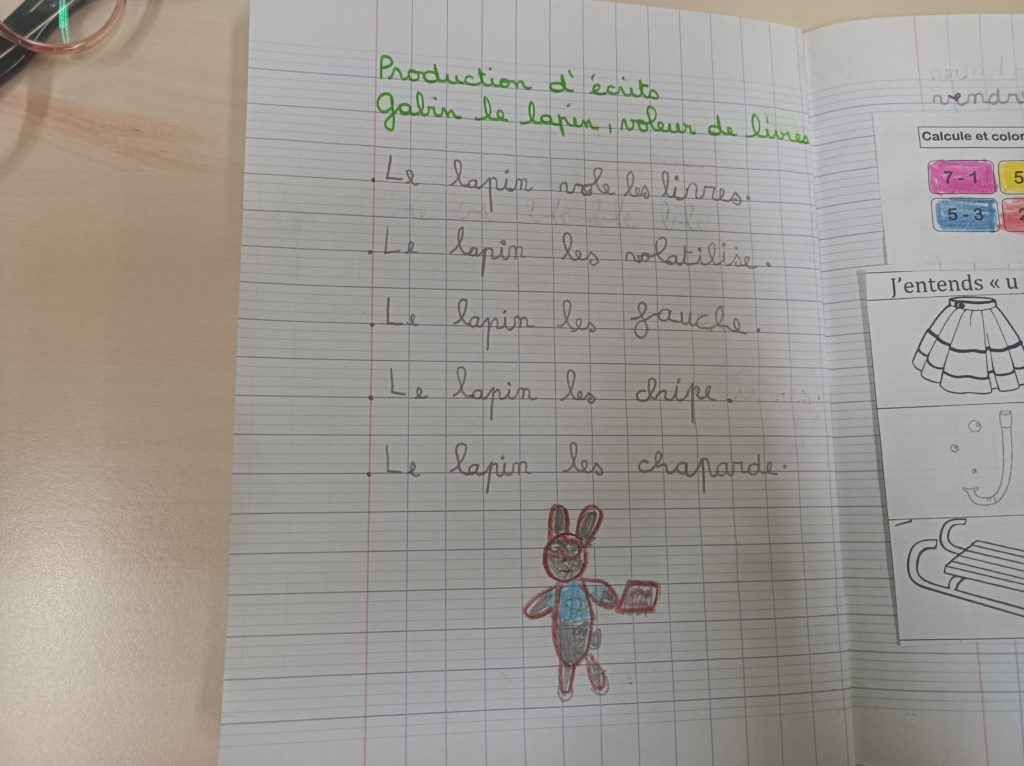 Production d'écrits
Gabin le lapin, voleur de livres
. Le lapin vole les livres.
. Le lapin les volatilise.
. Le lapin les fauche.
. Le lapin les chipe.
. Le lapin les chaparde.
vendr
Calcule et color
7 - 1
5
5 - 3
2
J'entends « u